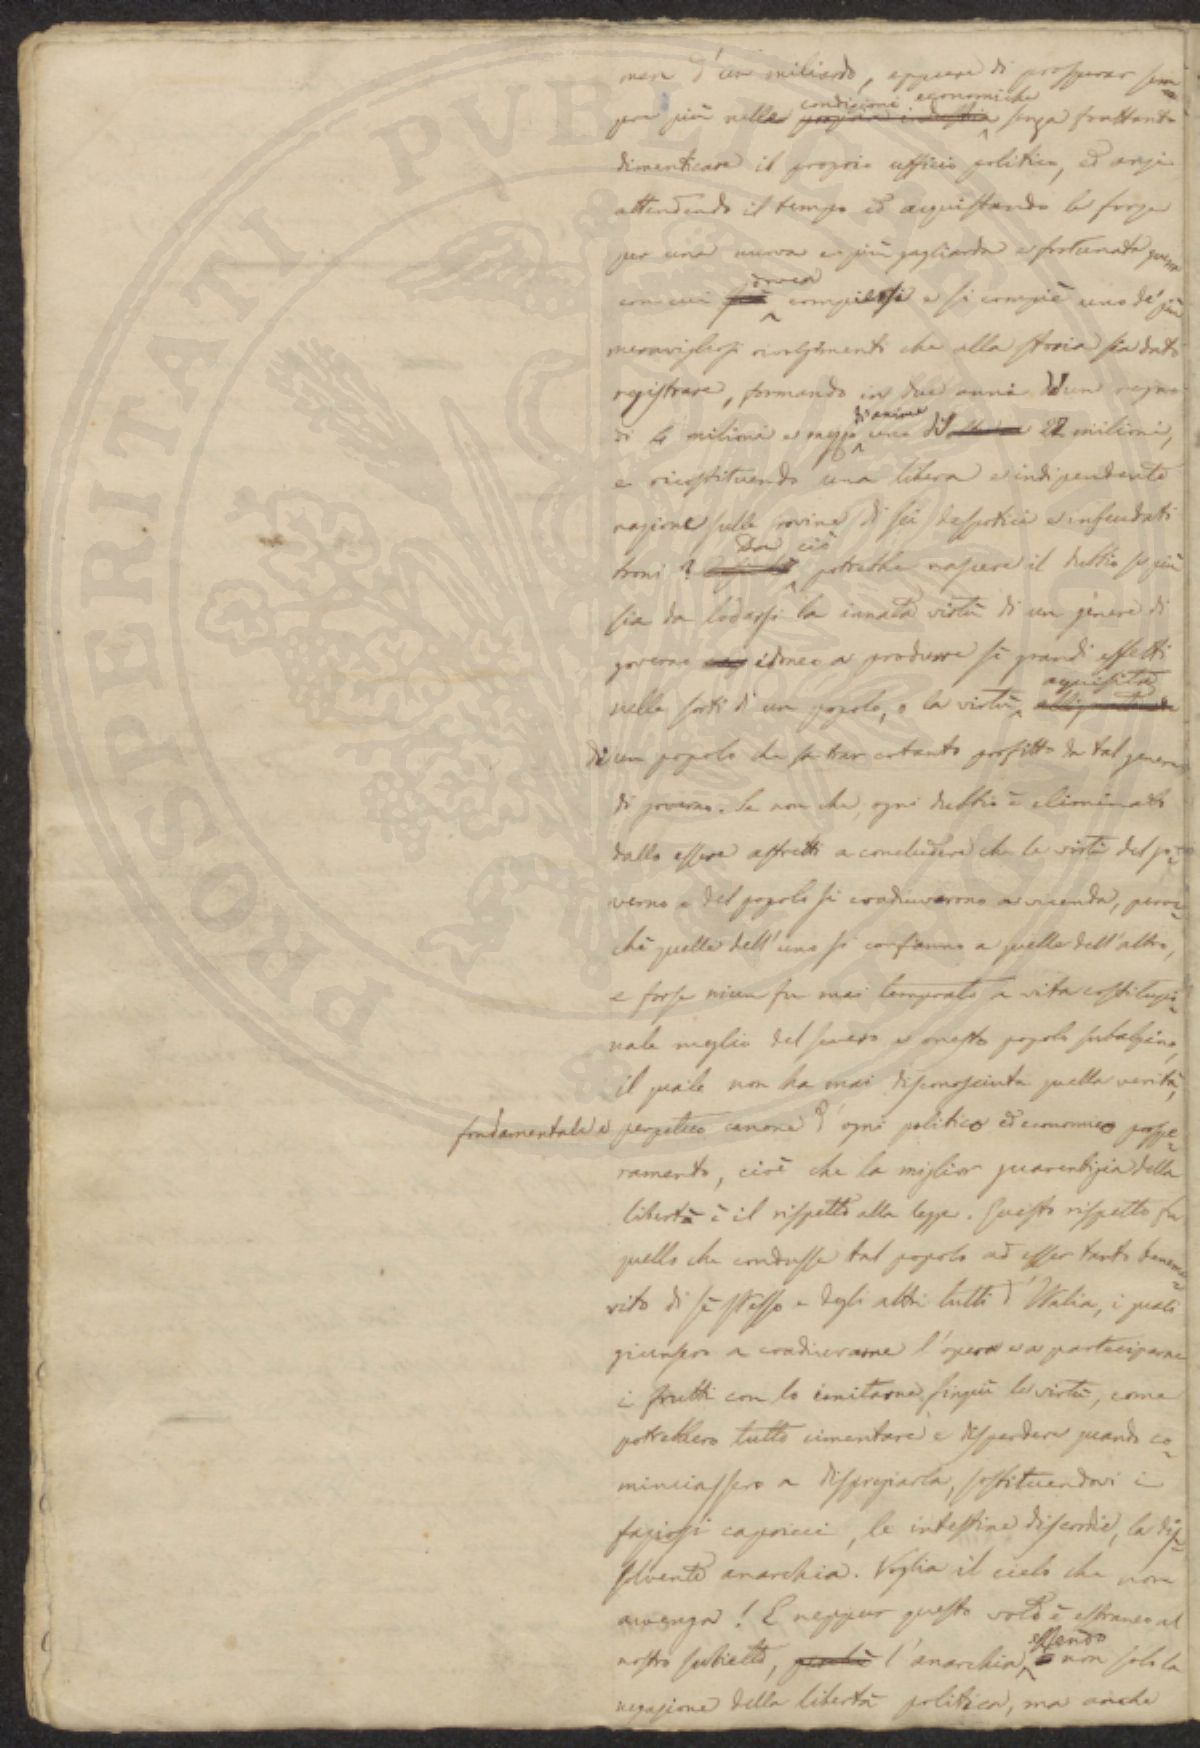 men d'un miliardo, eppure di prosperar sem=
pre più nelle condizioni economiche senza frattanto
dimenticare il proprio ufficio politico, ed anzi
attendendo il tempo ed acquistando le forze
per una nuova e più gagliarda e fortunata guerra
con cui dovea compiersi e si compiè uno de' più
meravigliosi rivolgimenti che alla storia sia dato
registrare, formando in due anni d'un regno
di 4 milioni e mezzo di anime uno di 22 milioni,
e ricostituendo una libera e indipendente
nazione sulle rovine di sei despotici e infeudati
troni? Da ciò potrebbe nascere il dubbio se più
sia da lodarsi la innata virtù di un genere di
governo idoneo a produrre sì grandi effetti
nelle sorti di un popolo, o la virtù acquisita
di un popolo che sa trar cotanto profitto da tal genere
di governo. Se non che, ogni dubbio è eliminato
dallo essere astretti a concludere che le virtù del go=
verno e del popolo si coadiuvarono a vicenda, peroc=
chè quelle dell'uno si confanno a quelle dell'altro,
e forse niun fu mai temprato a vita costituzio=
nale meglio del severo e onesto popolo subalpino,
il quale non ha mai disconosciuta quella verità,
fondamentale e perpetuo canone d'ogni politico ed economico prospe=
ramento, cioè che la miglior guarentigia della
libertà è il rispetto alla legge. Questo rispetto fu
quello che condusse tal popolo ad esser tanto beneme=
rito di sè stesso e degli altri tutti d'Italia, i quali
giunsero a coadiuvarne l'opera e a parteciparne
i frutti con lo imitarne singùi le virtù, come
potrebbero tutto cimentare e disperdere quando co=
minciassero a dispregiarla, sostituendovi i
faziosi capricci, le intestine discordie, la dis=
solvente anarchia. Voglia il cielo che non
avvenga! E neppur questo voto è estraneo al
nostro subietto, l'anarchia essendo non solo la
negazione della libertà politica, ma anche
PROSPERITATI PUBLICAE